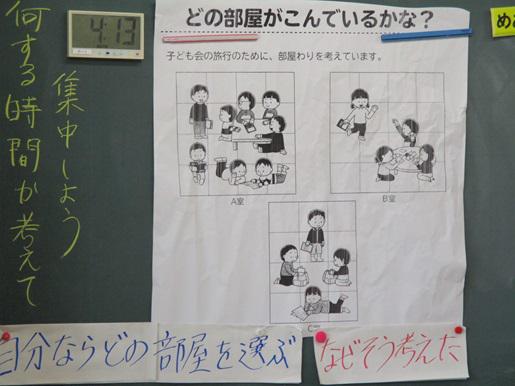 何する時間か考えて
集中しよう
4:13
どの部屋がこんでいるかな？
子ども会の旅行のために、部屋わりを考えています。
A室
B室
C
め
自分ならどの部屋を選ぶ
なぜそう考えた